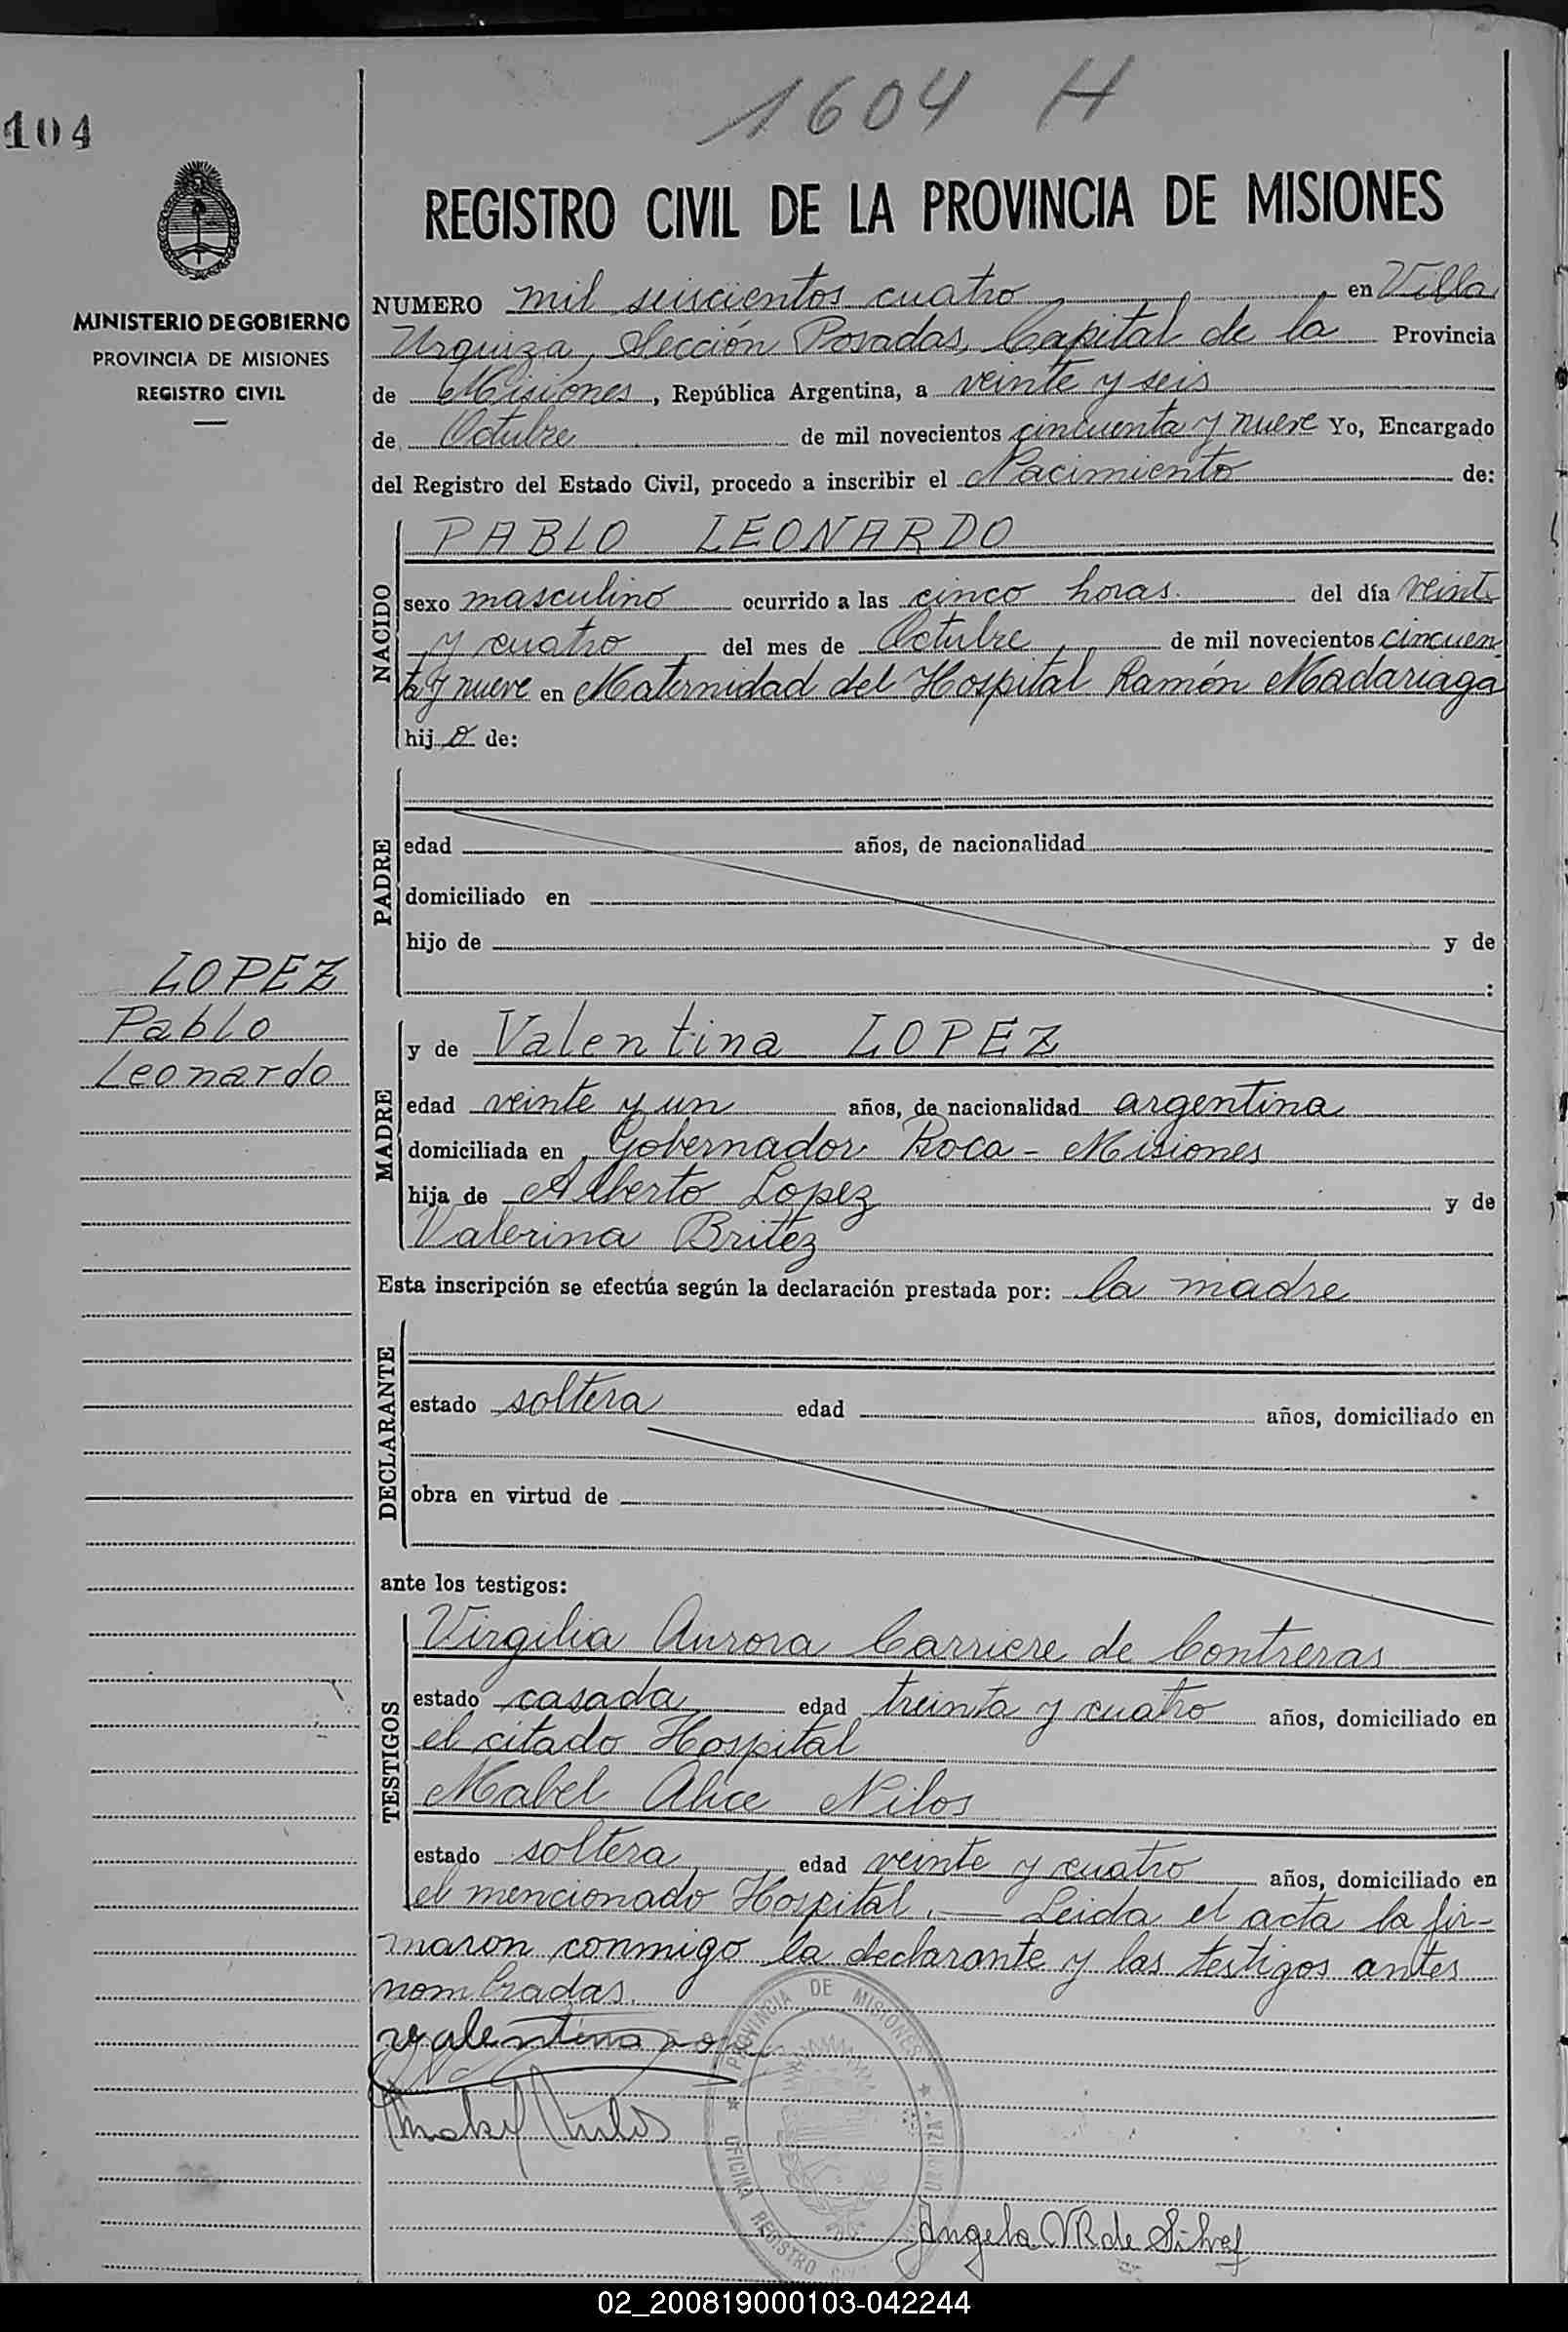 1604 H
104
REGISTRO CIVIL DE LA PROVINCIA DE MISIONES
MINISTERIO DE GOBIERNO
PROVINCIA DE MISIONES
REGISTRO CIVIL
NUMERO mil seiscientos cuatro en Villa
Urquiza, Sección Posadas, Capital de la Provincia
de Misiones, República Argentina, a veinte y seis
de Octubre de mil novecientos cincuenta y nueve Yo, Encargado
del Registro del Estado Civil, procedo a inscribir el Nacimiento de:
NACIDO
PABLO LEONARDO
sexo masculino ocurrido a las cinco horas. del día veinte
y cuatro del mes de Octubre de mil novecientos cincuen
ta y nueve en Maternidad del Hospital Ramón Madariaga
hijo de:
PADRE
edad años, de nacionalidad
domiciliado en
hijo de y de
:
LOPEZ
Pablo
Leonardo
MADRE
y de Valentina LOPEZ
edad veinte y un años, de nacionalidad argentina
domiciliada en Gobernador Roca - Misiones
hija de Alberto Lopez y de
Valerina Britez
Esta inscripción se efectúa según la declaración prestada por: la madre
DECLARANTE
estado soltera edad años, domiciliado en
obra en virtud de
ante los testigos:
TESTIGOS
Virgilia Aurora Carriere de Contreras
estado casada edad treinta y cuatro años, domiciliado en
el citado Hospital
Mabel Alice Nilos
estado soltera edad veinte y cuatro años, domiciliado en
el mencionado Hospital. — Leida el acta la fir-
maron conmigo la declarante y las testigos antes
nombradas.
valentina
PROVINCIA DE MISIONES
OFICINA REGISTRO
Angela VR de Silva
02_200819000103-042244